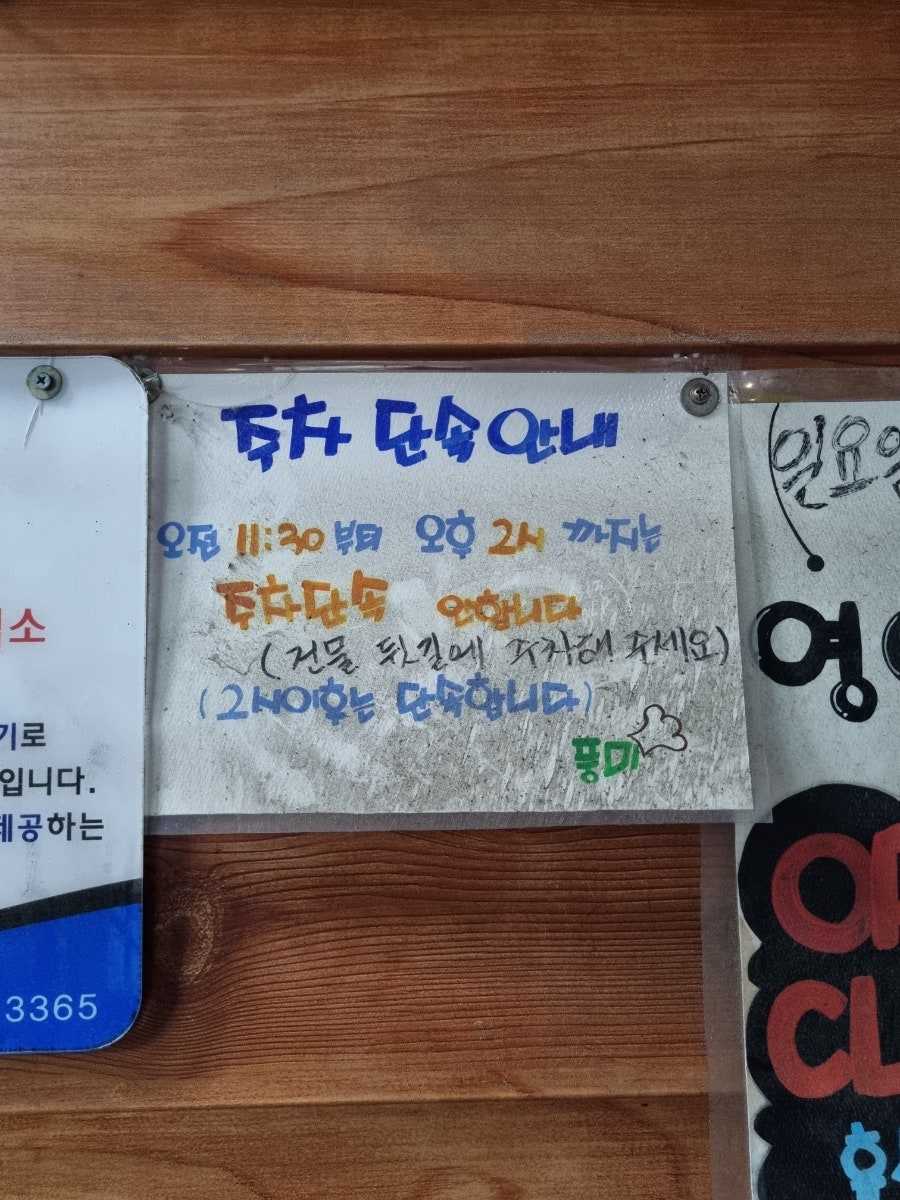 주차 단속 안내
오전 11:30 부터 오후 2시 까지는
주차단속 안합니다
(건물 뒷길에 주차해 주세요)
(2시이후는 단속합니다)
풍미
소
기로
입니다.
제공하는
3365
일요일
영